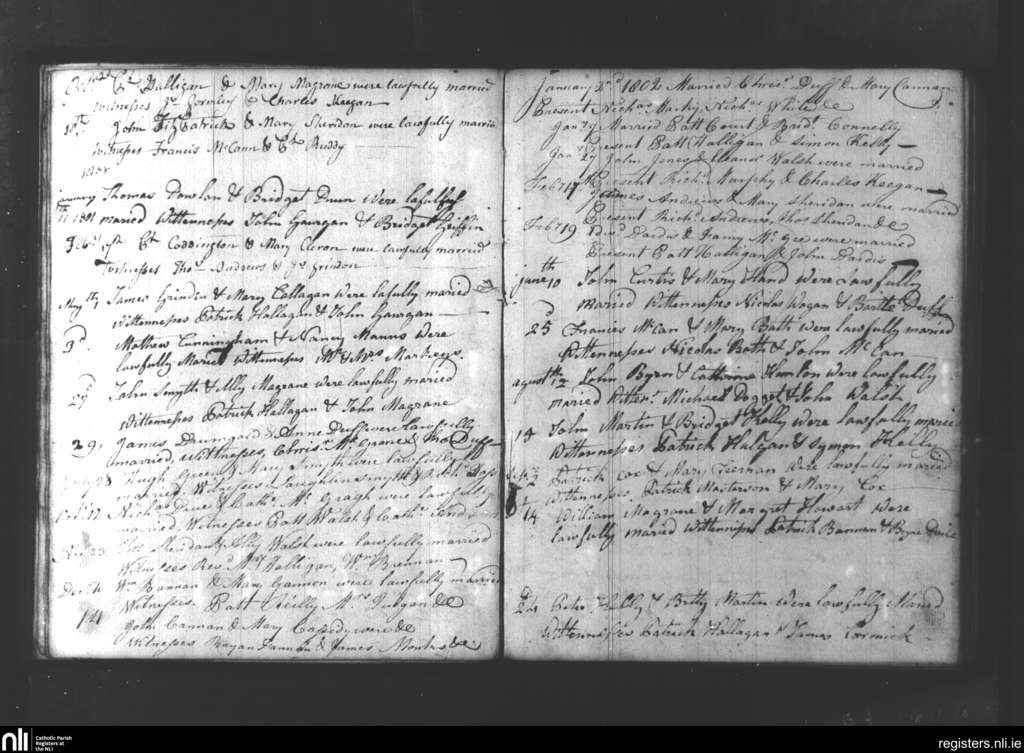 Dalligan & Mary Magrane were lawfully married
Witnesses Jn. Gormley & Charles Keegan
10th John Fitzpatrick & Mary Sheridan were lawfully married
Witnesses Francis McCann & Ruddy
January Thomas Dowlan & Bridget Were lafulley
11 1801 maried Wittennesses John Gauragan & Bridget Griffin
Feb. Coddington & Mary were lawfully married
Witnesses Thos. Andrews &
May James Grindin & Mary Callagan Were lafully maried
Wittennesses Patrick Hallagan & John Gauragan
3d. Mathew Cunningham & Nancy Manns Were
lawfully Maried Wittennesses Mr & Mrs Markeys
John Smyth & Ally Magrane were lawfully maried
Wittennesses Patrick Hallagan & John Magrane
29 James Drumgold & Anne Duff were lawfully
married, Witnesses, & Thos Duff
Hugh Green & Mary Smyth were lawfully
married Witnesses Laughlin Smyth &
Were lawfully
married Witnesses Patt Walsh & Cath.
Sheridan & Ally Walsh were lawfully married
Witnesses Revd. Mr. Halligan, Wm Brennan
Dec. 4 Wm Bannan & Mary Gannon were lawfully married
Witnesses Patt Reilly Mrs &c
14 John Cannan & Mary Cassidy were &c
Witnesses & James &c
January 2nd 1802 Married Chris. Duff & Mary Cannan
Present Nichs. Nichs. White &c
Jan. Married Patt Court & Bridt. Connelly
Present Patt Halligan & Simon Kelly
Jan. 27 John Jones & Eleanr. Walsh were married
Present Richd. Murphy & Charles Keegan
Feb. 17th James Andrews & Mary Sheridan were married
Present Richd. Andrews, Thos Sheridan &c
Feb. 19 Edwd. Dardis & Fanny McGee were married
Present Patt Halligan & John Dardis
june 10th John Curtis & Mary Hand Were Lawfully
maried Wittennesses Nicolas Wogan & Bartle Duff
25 Frances McCan & Mary Bath were lawfully maried
Wittennesses Nicolas Bath & John McCan
agust 12th John Byrn & Catherine Hanlon were lawfully
maried Wittens. Michael Dogget & John Walsh
14 John Martin & Bridget Kelly were lawfully maried
Wittennesses Patrick Haligan & Symon Kelly
Patrick Cox & Mary Teernan Were lawfully maried
Wittennesses Patrick Masterson & Mary Cox
14 William Magrane & Margret Howart Were
lawfully maried Wittennesses Patrick Bannan &
24 Peter Kelly & Betty Martin Were lawfully Maried
Wittennesses Patrick Hallagan & James Cormick
nli
Catholic Parish
Registers at
the NLI
registers.nli.ie